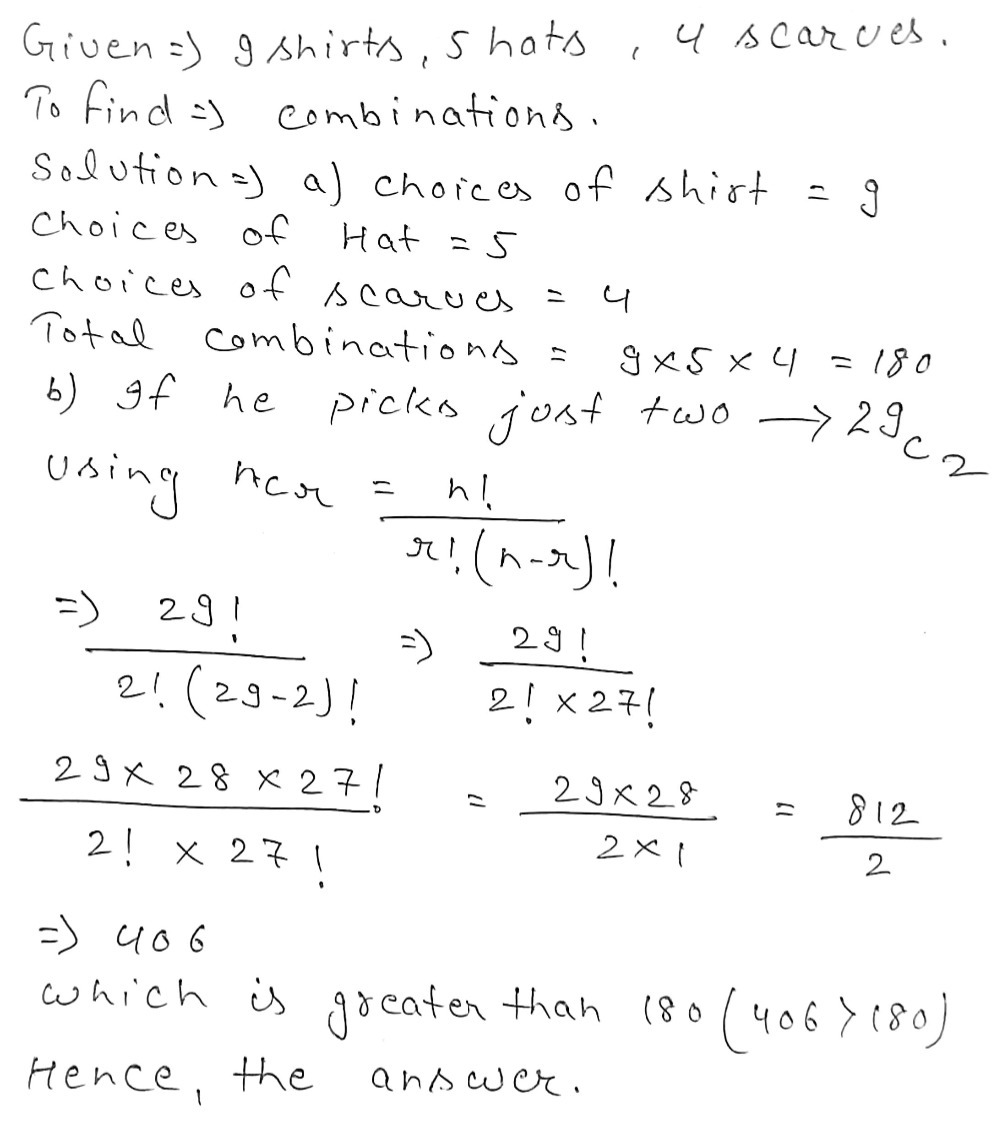 Given => 9 shirts, 5 hats, 4 scarves.
To find => combinations.
Solution => a) choices of shirt = 9
Choices of Hat = 5
Choices of scarves = 4
Total combinations = 9x5x4 = 180
b) If he picks just two → 29c2
Using ncr = n! / r!(n-r)!
=> 29! / 2!(29-2)! => 29! / 2! x 27!
29 x 28 x 27! / 2! x 27! = 29x28 / 2x1 = 812 / 2
=> 406
which is greater than 180 (406 > 180)
Hence, the answer.